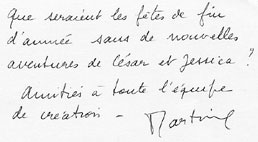 Que seraient les fêtes de fin
d'année sans de nouvelles
aventures de César et Jessica ?
Amitiés à toute l'équipe
de création –
Martine